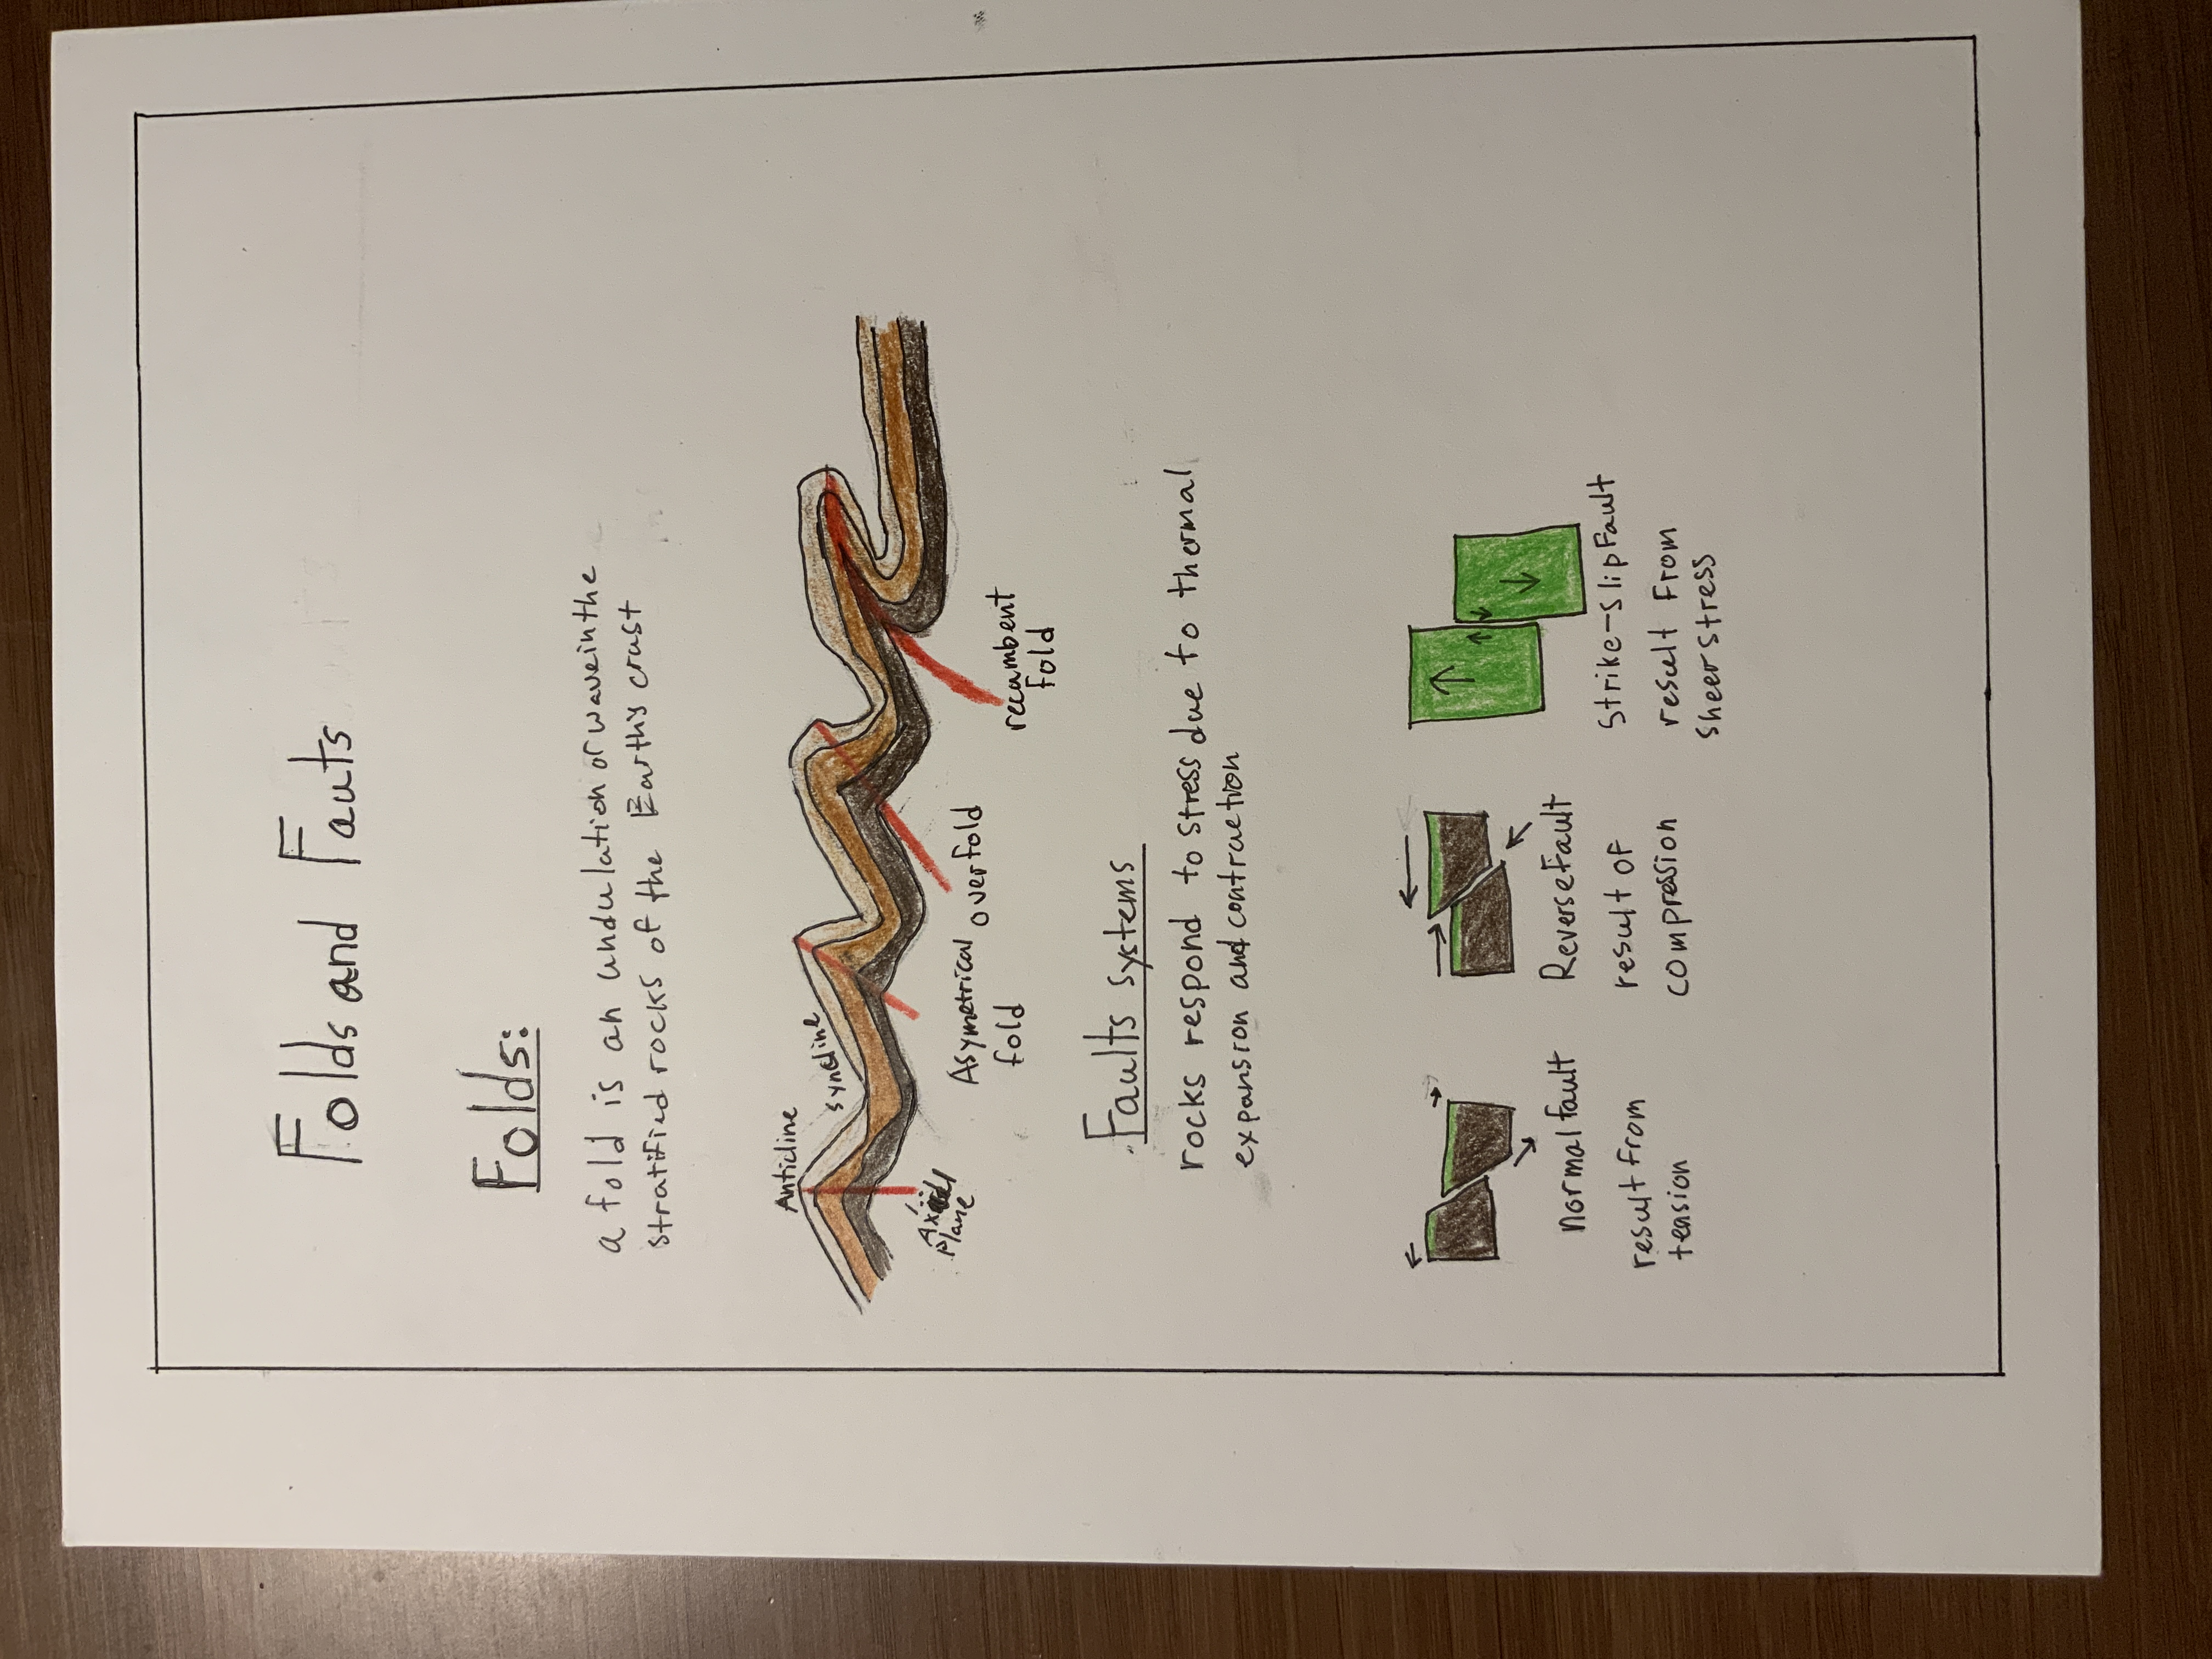 Folds and Fauts
Folds:
a fold is an undulation or wave in the
stratified rocks of the Earth's crust
Anticline
syncline
Axial
Plane
Asymetrical
fold
overfold
recambent
fold
Faults systems
rocks respond to stress due to thermal
expansion and contraction
normal fault
result from
tension
Reverse Fault
result of
compression
Strike-slip Fault
result From
sheer stress